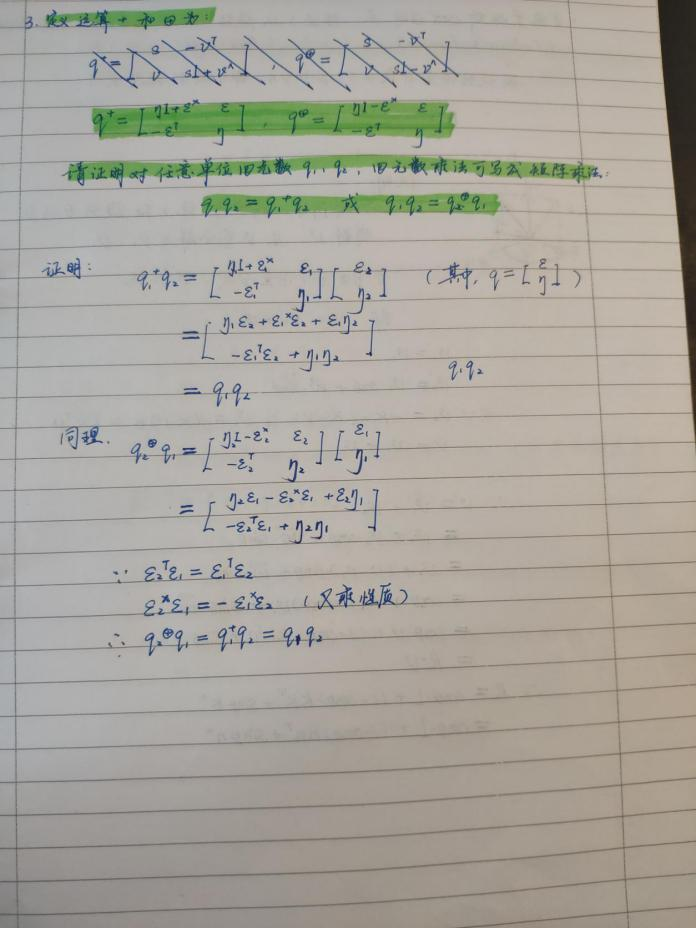 3. 定义运算 + 和 ⊕ 为:
q⁺ = [ s -vᵀ ; v sI+v^ ], q⊕ = [ s -vᵀ ; v sI-v^ ]
q⁺ = [ ηI+ε× ε ; -εᵀ η ], q⊕ = [ ηI-ε× ε ; -εᵀ η ]
请证明对任意单位四元数 q₁, q₂, 四元数乘法可写成矩阵乘法:
q₁q₂ = q₁⁺q₂ 或 q₁q₂ = q₂⊕q₁
证明: q₁⁺q₂ = [ η₁I+ε₁× ε₁ ; -ε₁ᵀ η₁ ] [ ε₂ ; η₂ ] (其中, q = [ ε ; η ])
= [ η₁ε₂+ε₁×ε₂+ε₁η₂ ; -ε₁ᵀε₂+η₁η₂ ]
= q₁q₂
q₁q₂
同理. q₂⊕q₁ = [ η₂I-ε₂× ε₂ ; -ε₂ᵀ η₂ ] [ ε₁ ; η₁ ]
= [ η₂ε₁-ε₂×ε₁+ε₂η₁ ; -ε₂ᵀε₁+η₂η₁ ]
∵ ε₂ᵀε₁ = ε₁ᵀε₂
ε₂×ε₁ = -ε₁×ε₂ (叉乘性质)
∴ q₂⊕q₁ = q₁⁺q₂ = q₁q₂